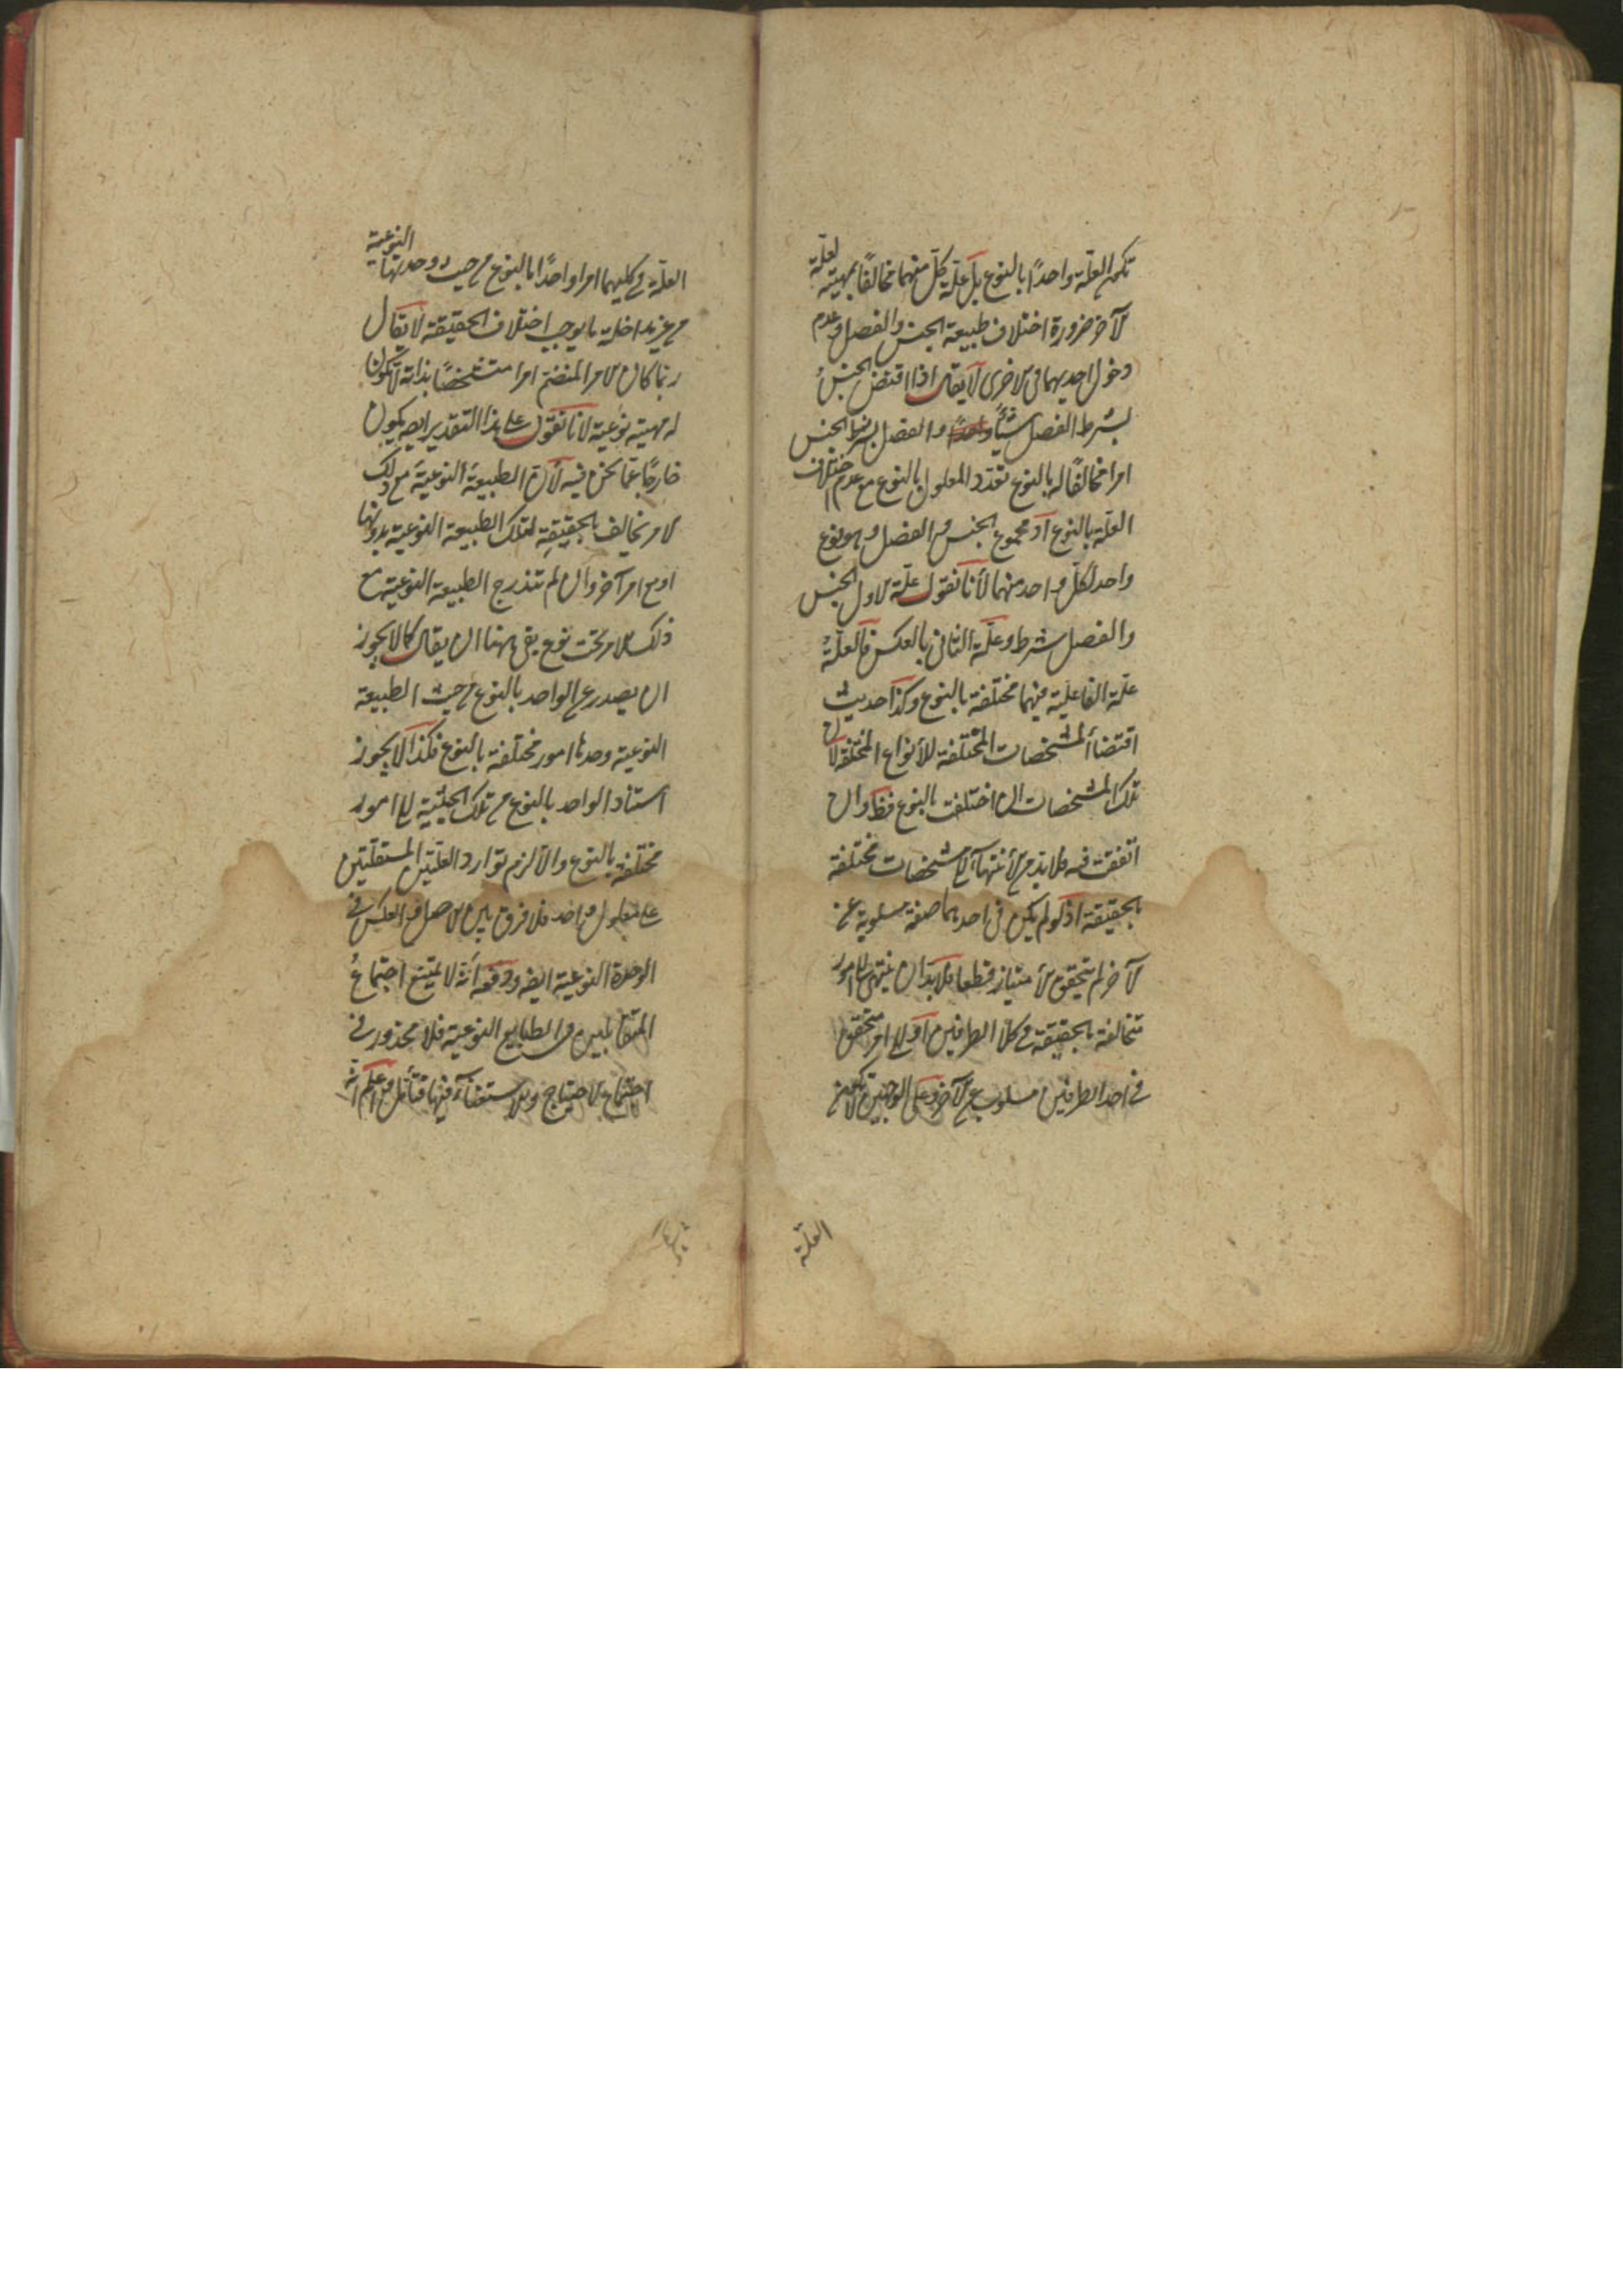 تكن العلة واحدًا بالنوع بل علة كل منهما مخالفًا بمهيته لعلة
لآخر ضرورة اختلاف طبيعة الجنس والفصل وعدم
دخول احديهما فى لاخرى لا يقال اذا اقتضى الجنس
بشرط الفصل شيئًا والفصل بشرط الجنس
امرا مخالفًا له بالنوع تعدد المعلول بالنوع مع عدم اختلاف
العلة بالنوع اذ مجموع الجنس والفصل وهو نوع
واحد لكل واحد منهما لأنا نقول علة لاول الجنس
والفصل شرط وعلة الثانى بالعكس فالعلة
علة الفاعلية فيهما مختلفة بالنوع وكذا حديث
اقتضاء المشخصات المختلفة للأنواع المختلفة لان
تلك المشخصات ان اختلفت بالنوع فظ وان
اتفقت فيه فلا بد من لأنتهاء الى مشخصات مختلفة
بالحقيقة اذ لو لم يكن فى احدهما صفة مسلوبة عن
لآخر لم يتحقق لأمتياز قطعا فلا بد ان ينتهى الى امور
متخالفة بالحقيقة فى كلا الطرفين او الى امر متحقق
فى احد الطرفين مسلوب عن لآخر وعلى الوجهين لا تكون
العلة
العلة فى كليهما امرا واحدًا بالنوع من حيث وحدتها النوعية
من غير مداخلة ما يوجب اختلاف الحقيقة لا يقال
ربما كان لامر المنضم امرا متشخصًا بذاته لا تكون
له مهية نوعية لانا نقول على هذا التقدير ايضه يكون
خارجًا عما نحن فيه لأن الطبيعة النوعية مع ذلك
لامر تخالف بالحقيقة لتلك الطبيعة النوعية بدونها
او مع امر آخر وان لم تندرج الطبيعة النوعية مع
ذلك لامر تحت نوع بقى ههنا ان يقال كما لا يجوز
ان يصدر عن الواحد بالنوع من حيث الطبيعة
النوعية وحدها امور مختلفة بالنوع فكذا لا يجوز
استناد الواحد بالنوع من تلك الحيثية الى امور
مختلفة بالنوع والا لزم توارد العلتين المستقلتين
على معلول واحد فلا فرق بين لاصل والعكس فى
الوحدة النوعية ايضه ودفعه أنه لا يمتنع اجتماع
المتقابلين فى الطبايع النوعية فلا محذور فى
اجتماع لاحتياج ولاستغناء فيها فتأمل واعلم انه